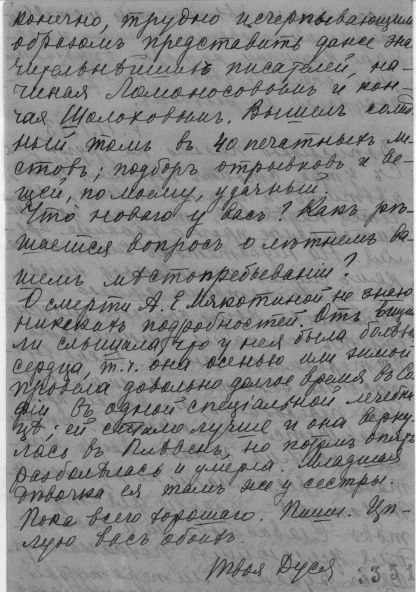 конечно, трудно исчерпывающимъ
образомъ представить даже зна
чительнѣйшихъ писателей, на-
чиная Ломоносовымъ и кон-
чая Шолоховымъ. Вышелъ солид
ный томъ въ 40 печатныхъ ли
стовъ; подборъ отрывковъ и ве-
щей, по моему, удачный.
Что новаго у васъ? Какъ рѣ-
шается вопросъ о лѣтнемъ ва
шемъ мѣстопребываніи?
О смерти А. Е. Мякотиной не знаю
никакихъ подробностей. Отъ
ли слышала, что у нея была болѣзнь
сердца, т.ч. она осенью или зимой
провела довольно долгое время въ Со
фіи въ одной спеціальной лечебни
цѣ; ей стало лучше и она верну
лась въ Плѣвенъ, но потомъ опять
разболѣлась и умерла. Младшая
дѣвочка ея тамъ же у сестры.
Пока всего хорошаго. Пиши. Цѣ-
лую васъ обоихъ.
Твоя Дуся